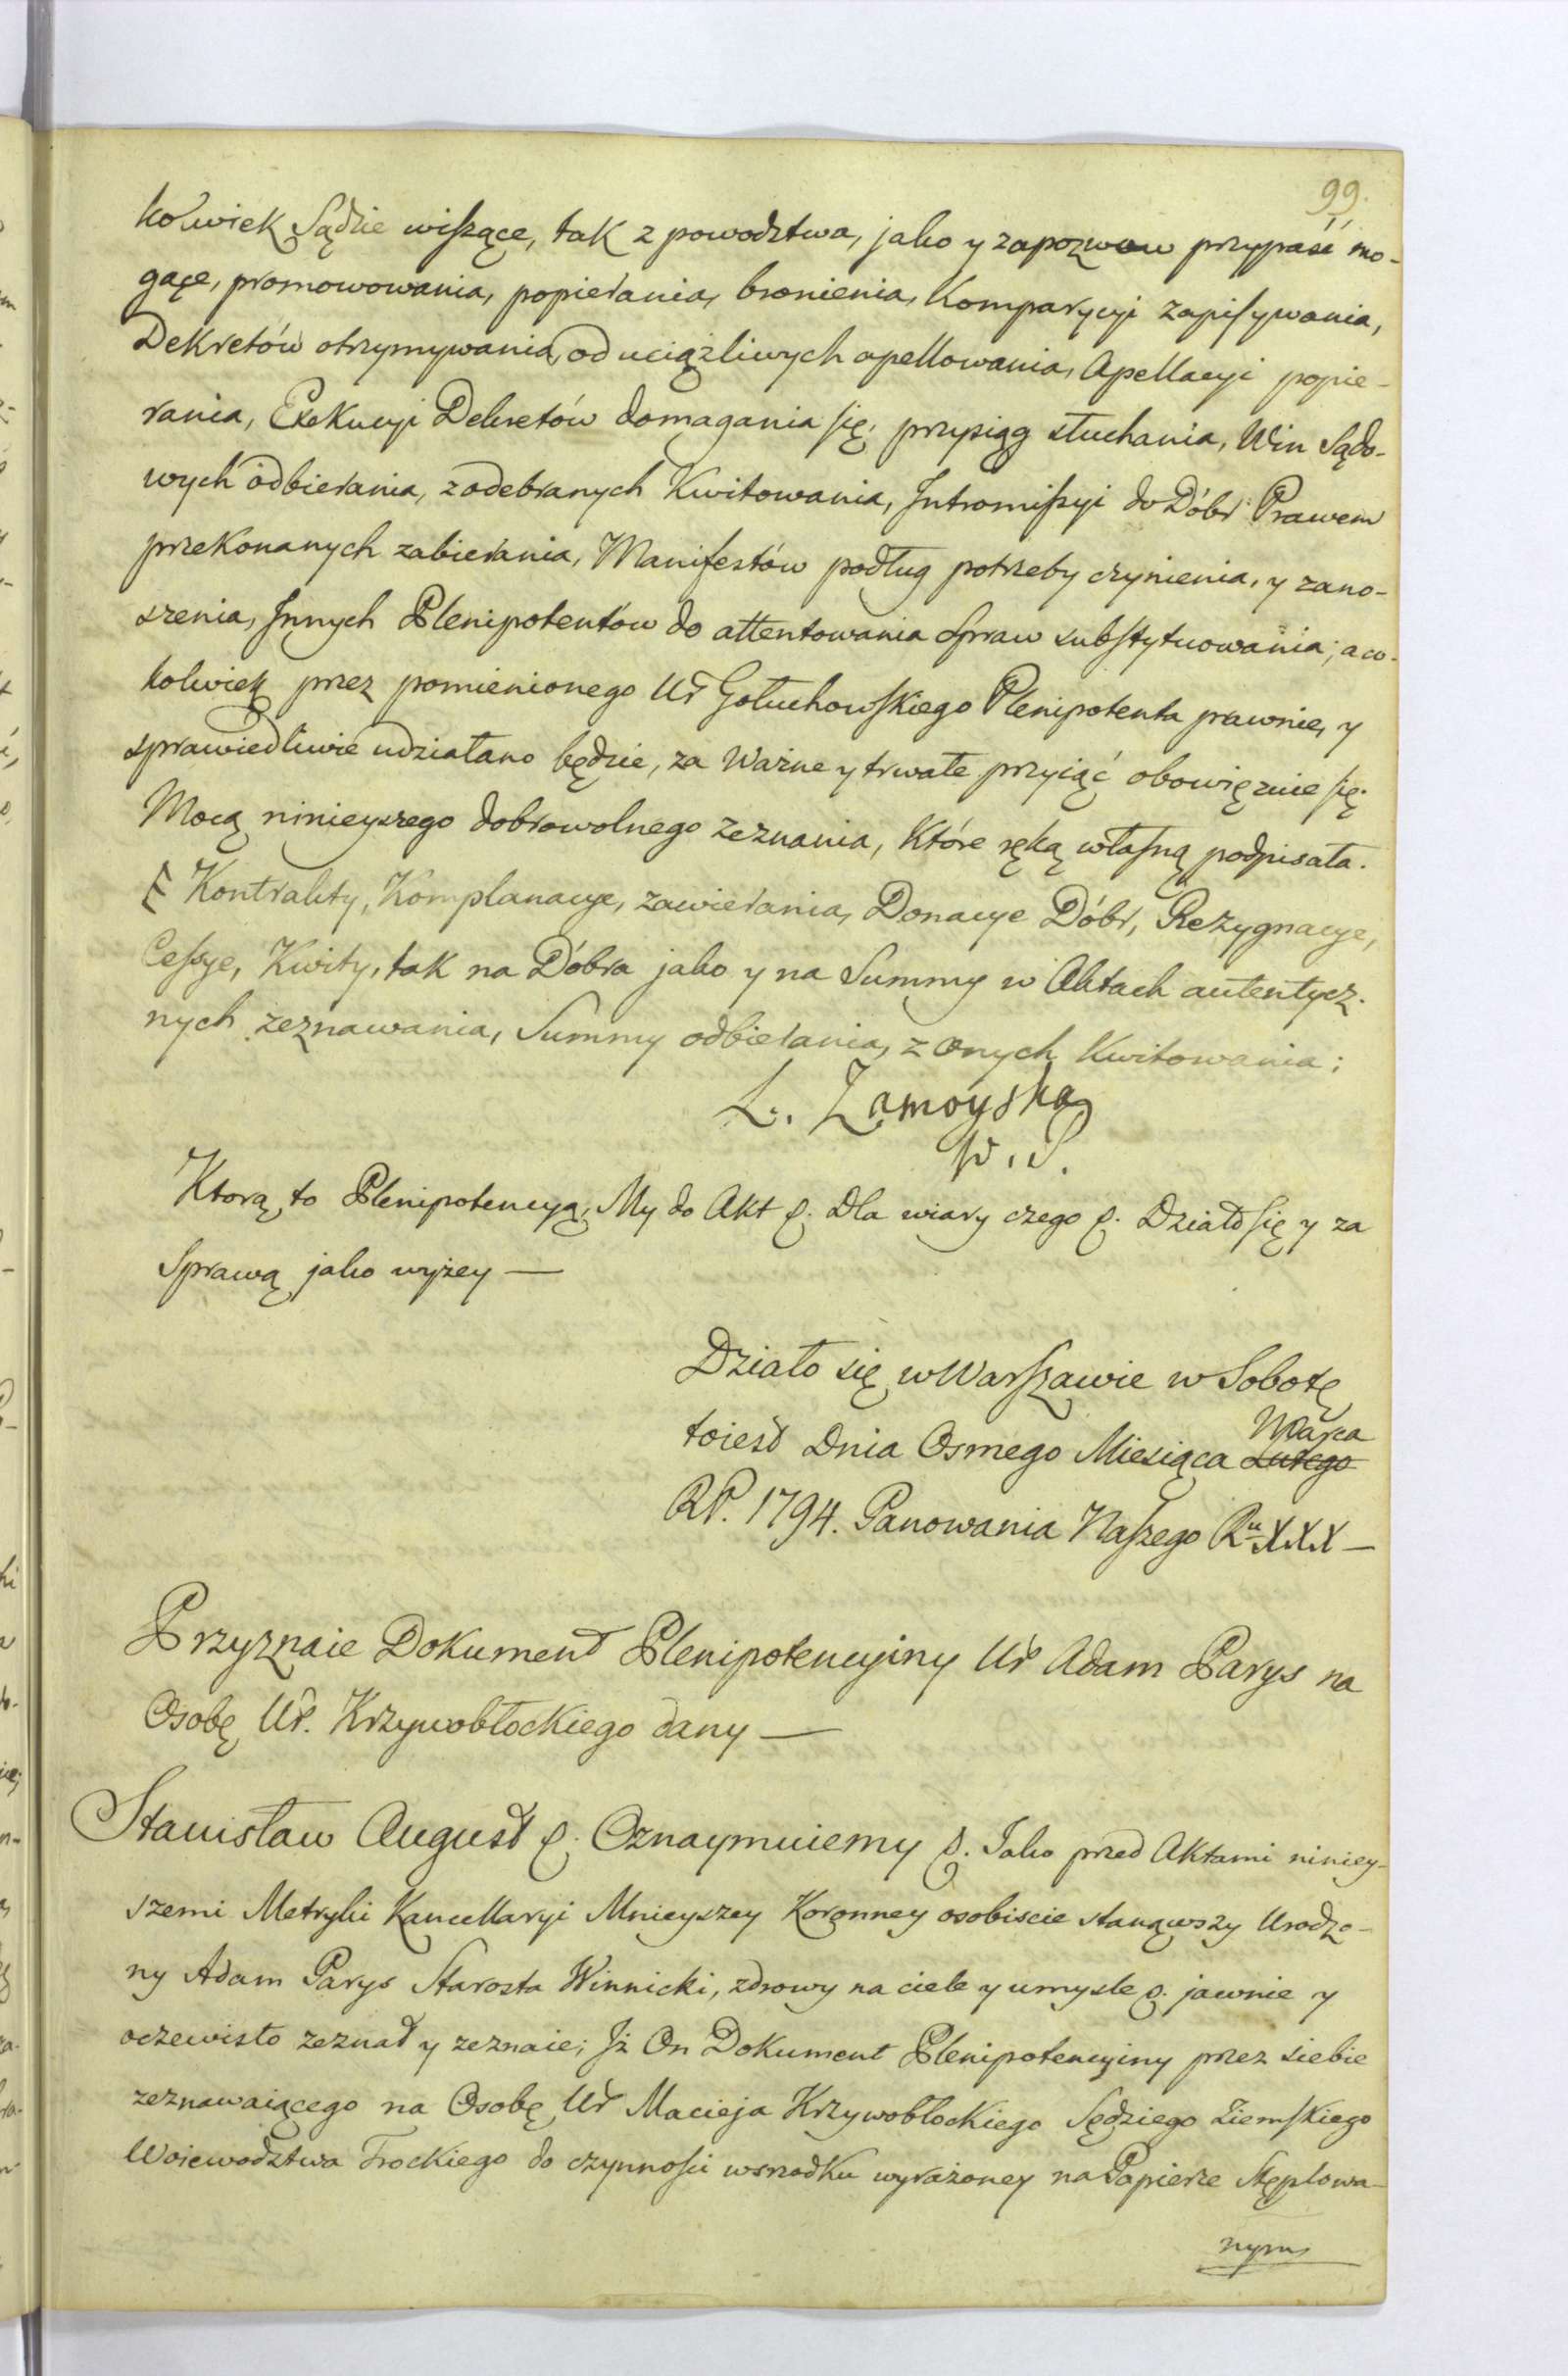 99.
kolwiek Sądzie wiszące, tak z powodztwa, jako y zapozwow przypaść mo-
gące, promowowania, popierania, bronienia, Komparycyi zapisywania,
Dekretów otrzymywania, od uciążliwych apellowania, Apellacyi popie-
rania, Exekucyi Dekretów domagania się, przysiąg słuchania, Win Sądo-
wych odbierania, z odebranych Kwitowania, Intromissyi do Dóbr Prawem
przekonanych zabierania, Manifestów podług potrzeby czynienia, y zano-
szenia, Innych Plenipotentów do attentowania Spraw substytuowania; a co-
kolwiek przez pomienionego Ur Gołuchowskiego Plenipotenta prawnie, y
sprawiedliwie udziałano będzie, za Ważne y trwałe przyiąć obowięzuie się.
Mocą ninieyszego dobrowolnego zeznania, Które ręką własną podpisała.
Kontrakty, Komplanacye, zawierania, Donacye Dóbr, Rezygnacye,
Cessye, Kwity, tak na Dóbra jako y na Summy w Aktach autentycz-
nych zeznawania, Summy odbierania, z onych Kwitowania;
L. Zamoyska
Ktorą to Plenipotencyą, My do Akt &. Dla wiary czego &. Działo się y za
Sprawą jako wyżey —
Działo się w Warszawie w Sobotę
toiest Dnia Osmego Miesiąca Lutego Marca
RP. 1794. Panowania Naszego Ru XXX —
Przyznaie Dokument Plenipotencyiny Ur Adam Parys na
Osobę Ur. Krzywobłockiego dany —
Stanisław August &. Oznaymuiemy &. Jako przed Aktami niniey-
szemi Metryki Kancellaryi Mnieyszey Koronney osobiscie stanąwszy Urodzo-
ny Adam Parys Starosta Winnicki, zdrowy na ciele y umysle &. jawnie y
oczewisto zeznał y zeznaie; Jż On Dokument Plenipotencyiny przez siebie
zeznawaiącego na Osobę Ur Macieja Krzywobłockiego Sędziego Ziemskiego
Woiewodztwa Trockiego do czynności wsrzodku wyrażoney na Papierze Stęplowa-
nym